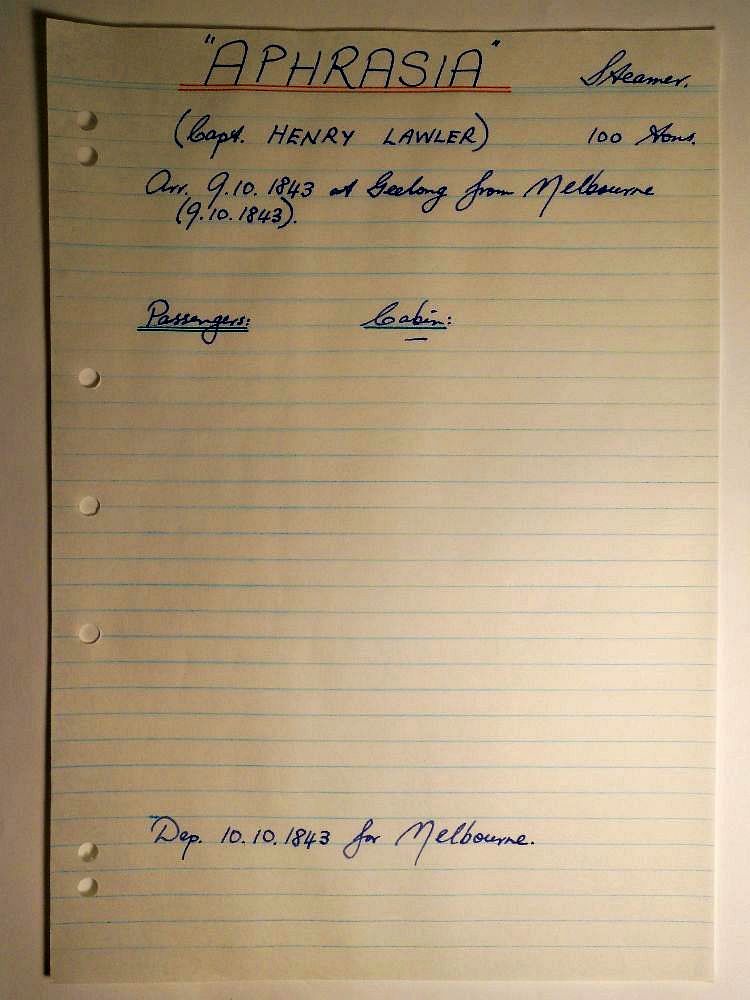 "APHRASIA" Steamer.
(Capt. HENRY LAWLER) 100 tons.
Arr. 9.10.1843 at Geelong from Melbourne
(9.10.1843).
Passengers: Cabin:
—
Dep. 10.10.1843 for Melbourne.